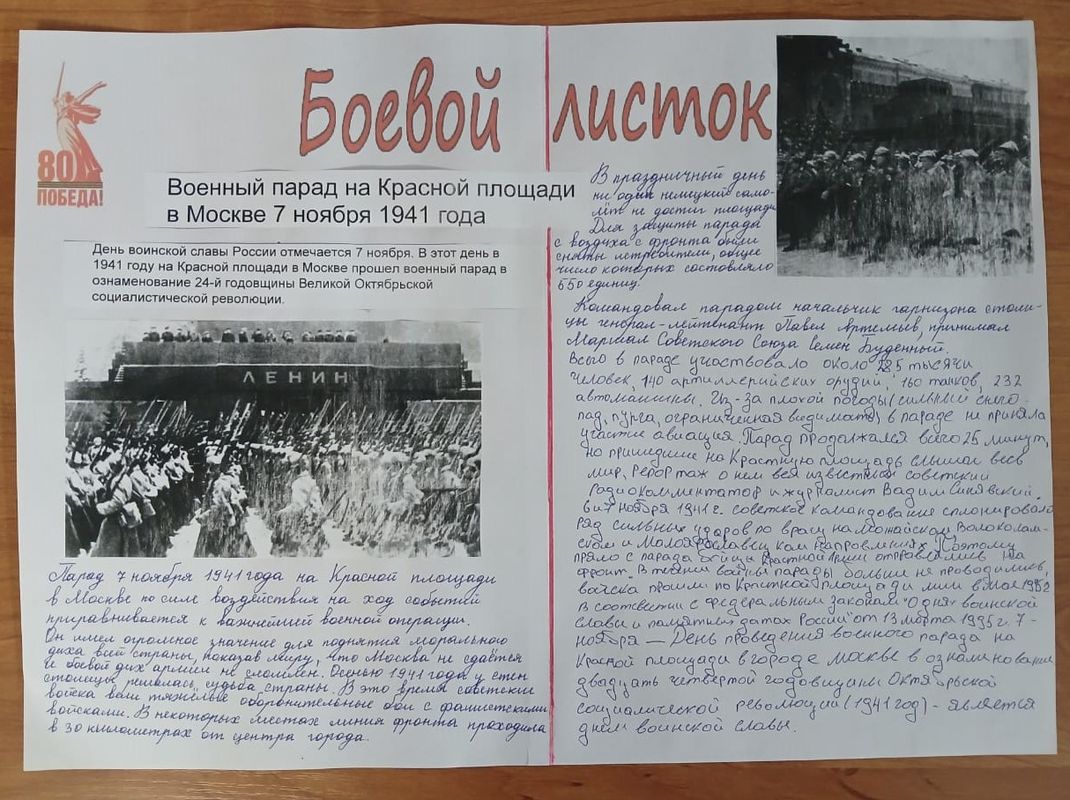 Боевой листок
80
ПОБЕДА!
Военный парад на Красной площади
в Москве 7 ноября 1941 года
День воинской славы России отмечается 7 ноября. В этот день в
1941 году на Красной площади в Москве прошел военный парад в
ознаменование 24-й годовщины Великой Октябрьской
социалистической революции.
ЛЕНИН
Парад 7 ноября 1941 года на Красной площади
в Москве по силе воздействия на ход событий
приравнивается к важнейшей военной операции.
Он имел огромное значение для поднятия морального
духа всей страны, показав миру, что Москва не сдаётся
и боевой дух армии не сломлен. Осенью 1941 года у стен
столицы решалась судьба страны. В это время советские
войска вели тяжёлые оборонительные бои с фашистскими
войсками. В некоторых местах линия фронта проходила
в 30 километрах от центра города.
В праздничный день
ни один немецкий само-
лёт не достиг площади
Для защиты парада
с воздуха с фронта были
сняты истребители, общее
число которых составляло
550 единиц.
Командовал парадом начальник гарнизона столи-
цы генерал-лейтенант Павел Артемьев, принимал
Маршал Советского Союза Семен Буденный.
Всего в параде участвовало около тысячи
человек, 140 артиллерийских орудий, 160 танков, 232
автомашины. Из-за плохой погоды (сильный снего-
пад, пурга, ограниченная видимость) в параде не приняла
участие авиация. Парад продолжался всего 25 минут,
но пришедшие на Красную площадь слышал весь
мир, репортаж о нем вел известный советский
радиокомментатор и журналист Вадим Синявский.
6 и 7 ноября 1941 г. советское командование спланировало
ряд сильных ударов по врагу на Можайском, Волоколам-
ском и Малоярославецком направлениях. Поэтому
прямо с парада бойцы Красной Армии отправились на
фронт. В течение войны парады больше не проводились,
войска прошли по площади лишь в мае
В соответствии с федеральным законом "О днях воинской
славы и памятных датах России" от 13 марта 1995 г. 7-
ноября — День проведения военного парада на
Красной площади в городе Москве в ознаменование
двадцать четвертой годовщины Октябрьской
социалической революции (1941 год) - является
днем воинской славы.